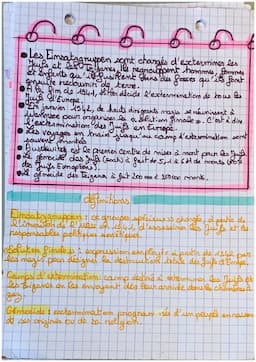 • Les Einsatzgruppen sont chargés d'exterminer les
Juifs et les Tziganes. Ils regroupent hommes, femmes
et enfants qu'ils fusillent dans des fosses qu'ils font
ensuite recouvrir de terre.
• A la fin de 1941, Hitler décide l'extermination de tous les
Juifs d'Europe.
• En janvier 1942, de hauts dirigeants nazis se réunissent à
Wannsee pour organiser la « solution finale », c'est à dire
l'extermination des Juifs en Europe.
• Les voyages en train jusqu'au camp d'extermination sont
souvent mortels.
• Auschwitz est le premier centre de mises à mort pour les Juifs
• Le génocide des Juifs (Shoah) a fait de 5,1 à 6 M de morts
des Juifs Européens).
• Le génocide des Tziganes a fait 200 000 à 250 000 morts.
définitions
Einsatzgruppen : groupes spéciaux chargés, à partir de
l'invasion de l'URSS en 1941, d'assassiner les Juifs et les
responsables politiques soviétiques.
Solution finale : expression employée à partir de 1942 par
les nazis pour désigner la destruction totale des Juifs d'Europe.
Camps d'extermination : camp destiné à exterminer les Juifs et
les Tziganes en les envoyant dès leur arrivée dans les chambres à
gaz.
Génocide : extermination programmée d'un peuple en raison
de ses origines ou de sa religion.